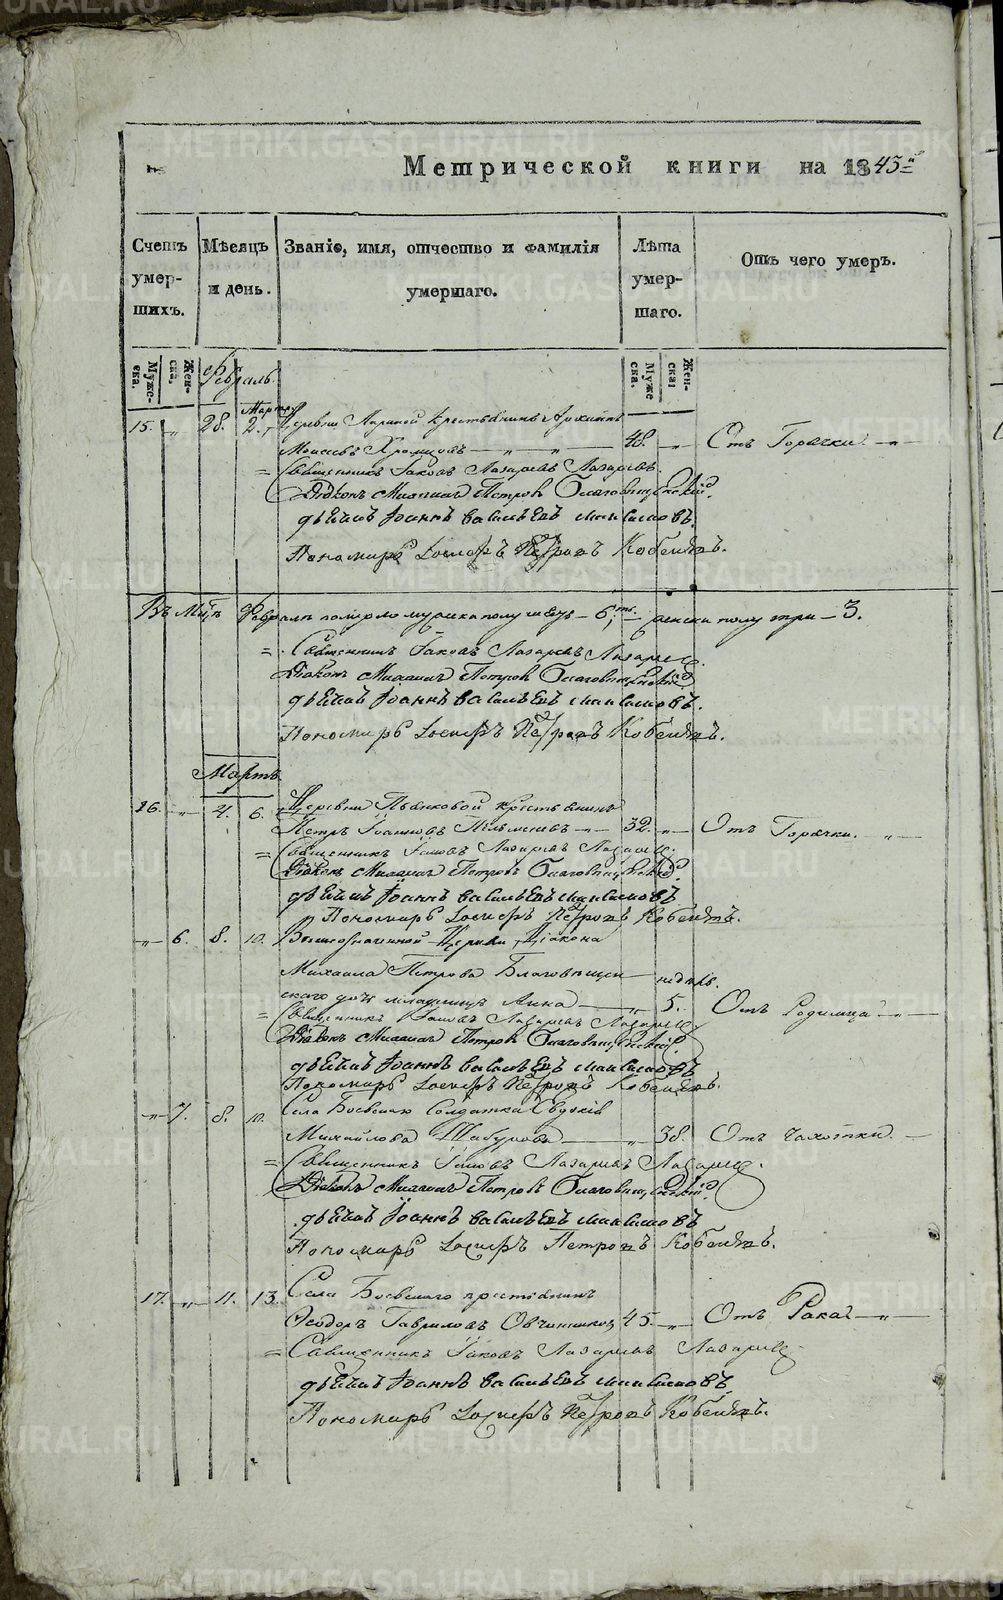 Метрической книги на 1843й
Счетъ умер-шихъ.
Мѣсяцъ и день.
Званіе, имя, отчество и фамилія умершаго.
Лѣта умер-шаго.
Отъ чего умеръ.
Муже-ска.
Жен-ска.
Февраль.
Муже-ска.
Жен-ска.
Марта
15. 28. 2. Деревни крестьянинъ Архиппъ
Моисеевъ Хромцовъ 48. Отъ Горячки.
Священникъ Іаковъ Лазаревъ Лазаревъ.
Діаконъ Михаилъ Петровъ Благовѣщенскій.
дьячокъ Іоаннъ Васильевъ
Пономарь Іосифъ Петровъ
Въ Февралѣ померло мужска полу шесть – 6, женска полу три – 3.
Священникъ Іаковъ Лазаревъ Лазаревъ.
Діаконъ Михаилъ Петровъ Благовѣщенскій
дьячокъ Іоаннъ Васильевъ
Пономарь Іосифъ Петровъ
Мартъ.
16. 4. 6. Деревни крестьянинъ
Петръ Іоанновъ 32. Отъ Горячки.
Священникъ Іаковъ Лазаревъ Лазаревъ.
Діаконъ Михаилъ Петровъ Благовѣщенскій.
дьячокъ Іоаннъ Васильевъ
Пономарь Іосифъ Петровъ
6. 8. 10. Вышеозначенной Церкви Діакона
Михаила Петрова Благовѣщен- недѣль.
скаго дочь младенецъ Анна 5. Отъ Родимца
Священникъ Іаковъ Лазаревъ Лазаревъ
Діаконъ Михаилъ Петровъ Благовѣщенскій.
дьячокъ Іоаннъ Васильевъ
Пономарь Іосифъ Петровъ
7. 8. 10. Села Солдатка Евдокія
Михайлова Шабурова 38. Отъ Чахотки.
Священникъ Іаковъ Лазаревъ Лазаревъ.
Діаконъ Михаилъ Петровъ Благовѣщенскій.
дьячокъ Іоаннъ Васильевъ
Пономарь Іосифъ Петровъ
17. 11. 13. Села крестьянинъ
Ѳеодоръ Гавриловъ Овчинниковъ 45. Отъ Рака
Священникъ Іаковъ Лазаревъ Лазаревъ
дьячокъ Іоаннъ Васильевъ
Пономарь Іосифъ Петровъ
METRIKI.GASO-URAL.RU